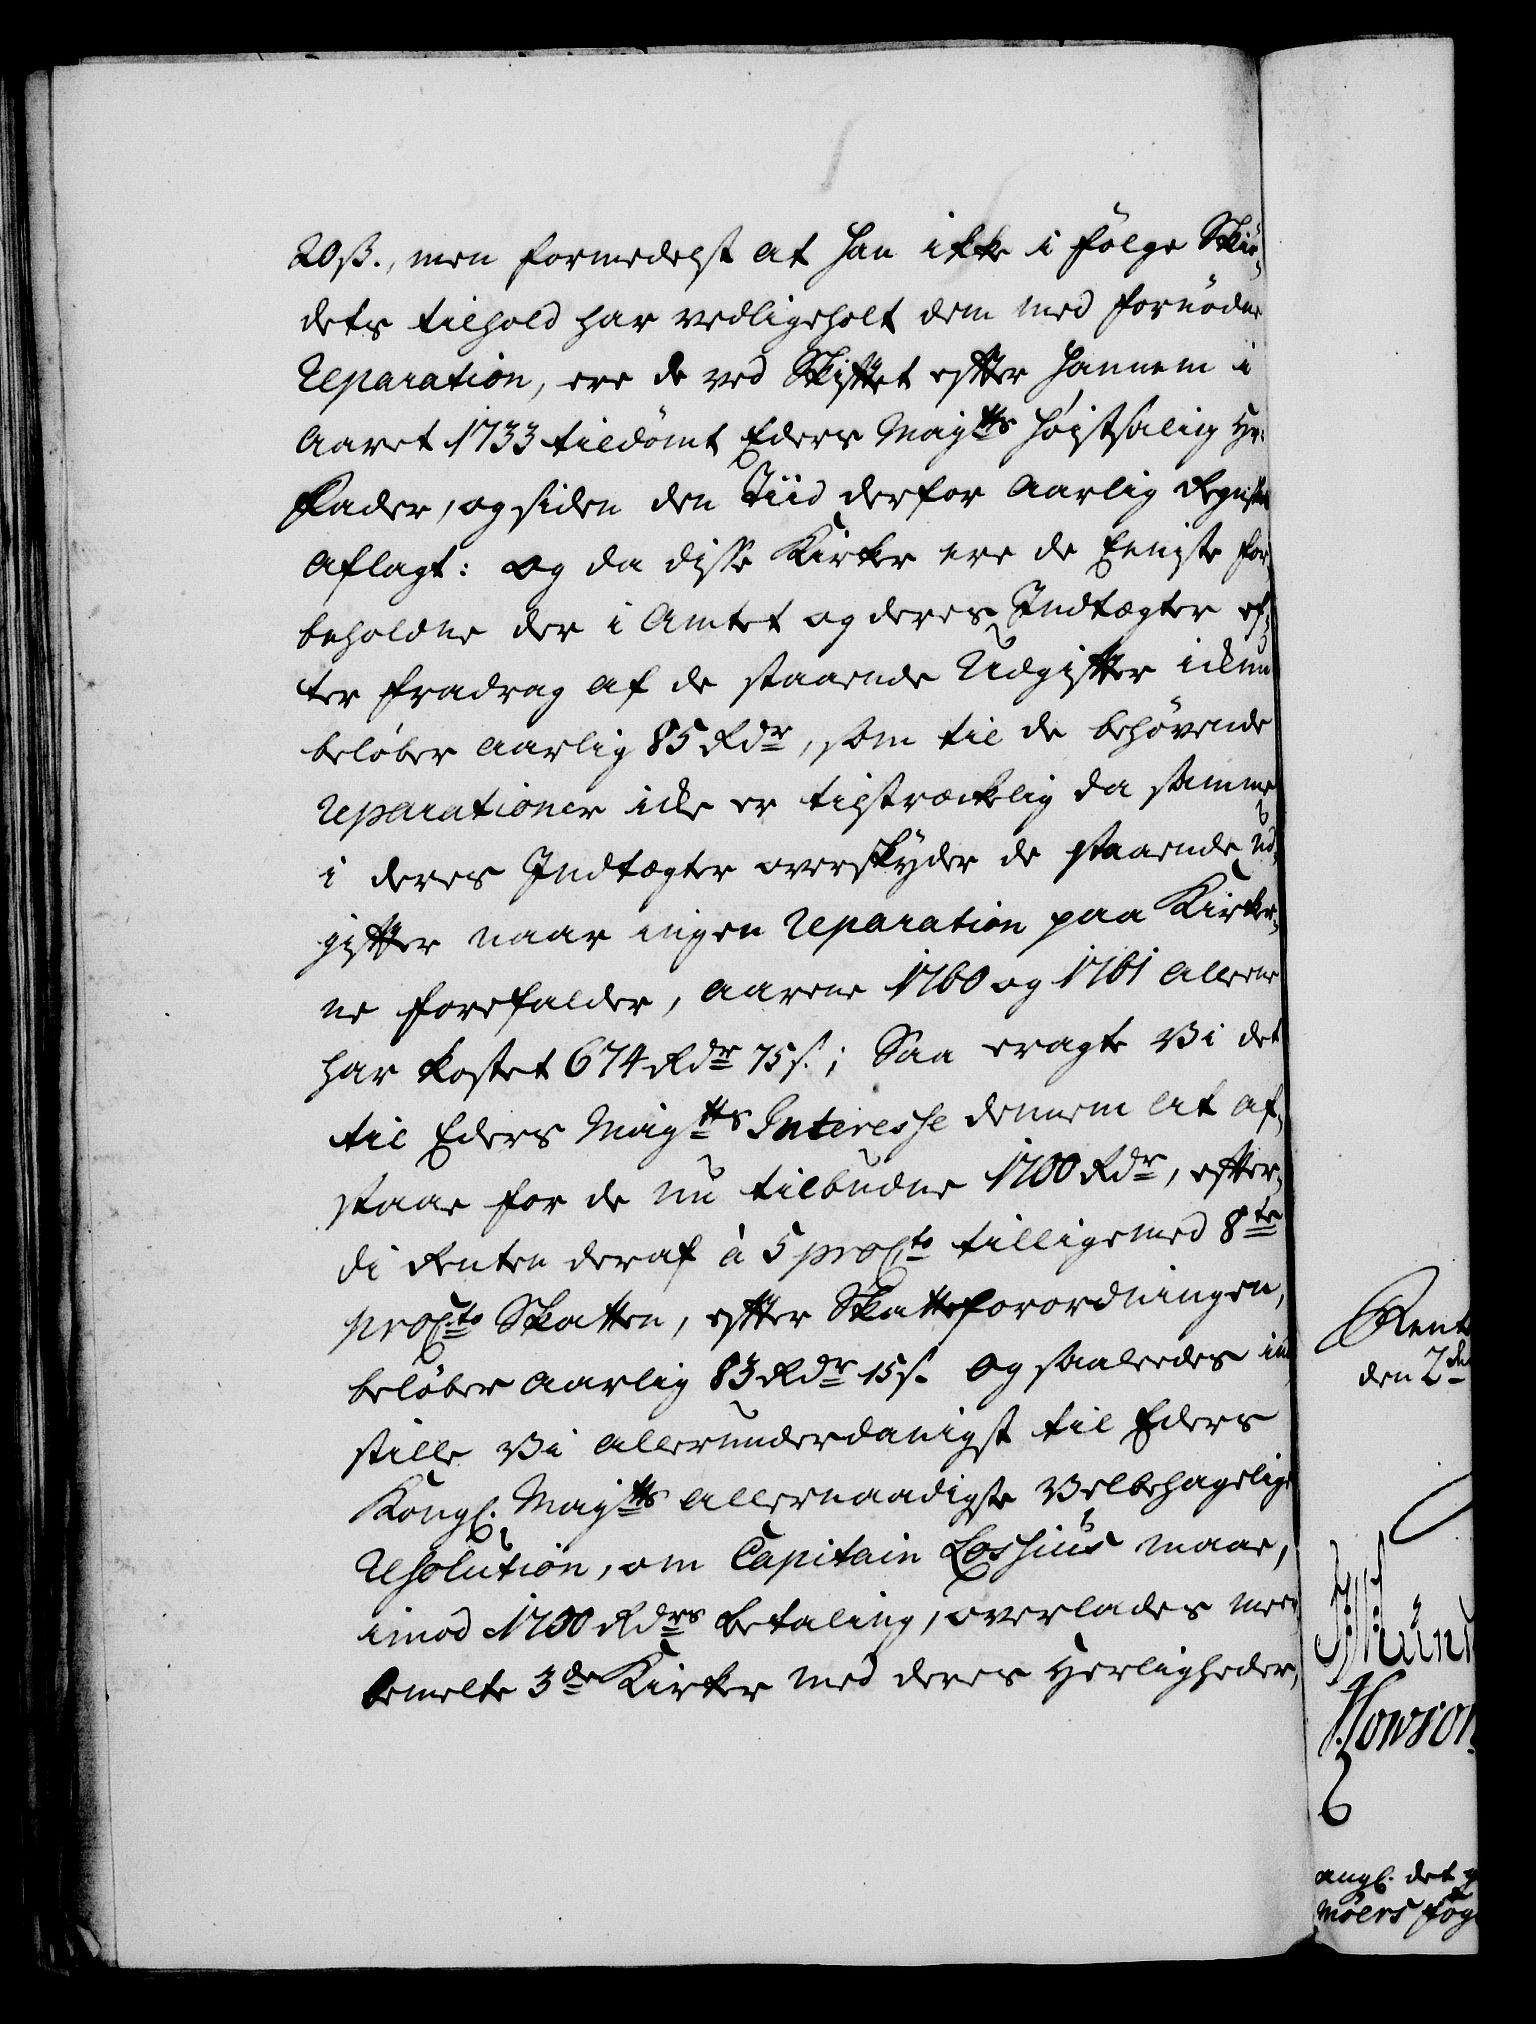 20 ß., men formedelst at han ikke i følge Skiø-
dets tilhold har vedligeholt dem med fornødne
reparation, ere de ved Skiftet efter hannem i
Aaret 1733 tildømt Eders Maytts høistsalig Hr.
Fader, og siden den Tiid derfor Aarlig
aflagt: og da disse Kirker ere de Eeniste for
beholdne der i Amtet og deres Indtægter ef-
ter fradrag af de staaende Udgifter ickun
beløber aarlig 85 Rdr, som til de behøvende
reparationer icke er tilstræckelig da samme
i deres Indtægter overskyder de staaende Ud-
gifter naar ingen reparation paa Kirker-
ne forefalder, Aarene 1760 og 1761 alleene
har kostet 674 Rdr 75 s.; Saa eragte Vi det
til Eders Maytts Interesse dennem at af-
staae for de nu tilbudne 1700 Rdr, efter-
di Renten deraf à 5 proCto tilligemed 8te
proCto Skatten, efter Skatteforordningen,
beløber aarlig 83 Rdr 15 s. Og saaledes ind
stille Vi allerunderdanigst til Eders
Kongl. Maytts allernaadigste Velbehagelige
resolution, om Capitain Lossius maae,
imod 1700 Rdrs betaling, overlades meer
bemelte 3de Kirker med deres Herligheder,
Rent
den 2den
Howson
angl. det
møers fog